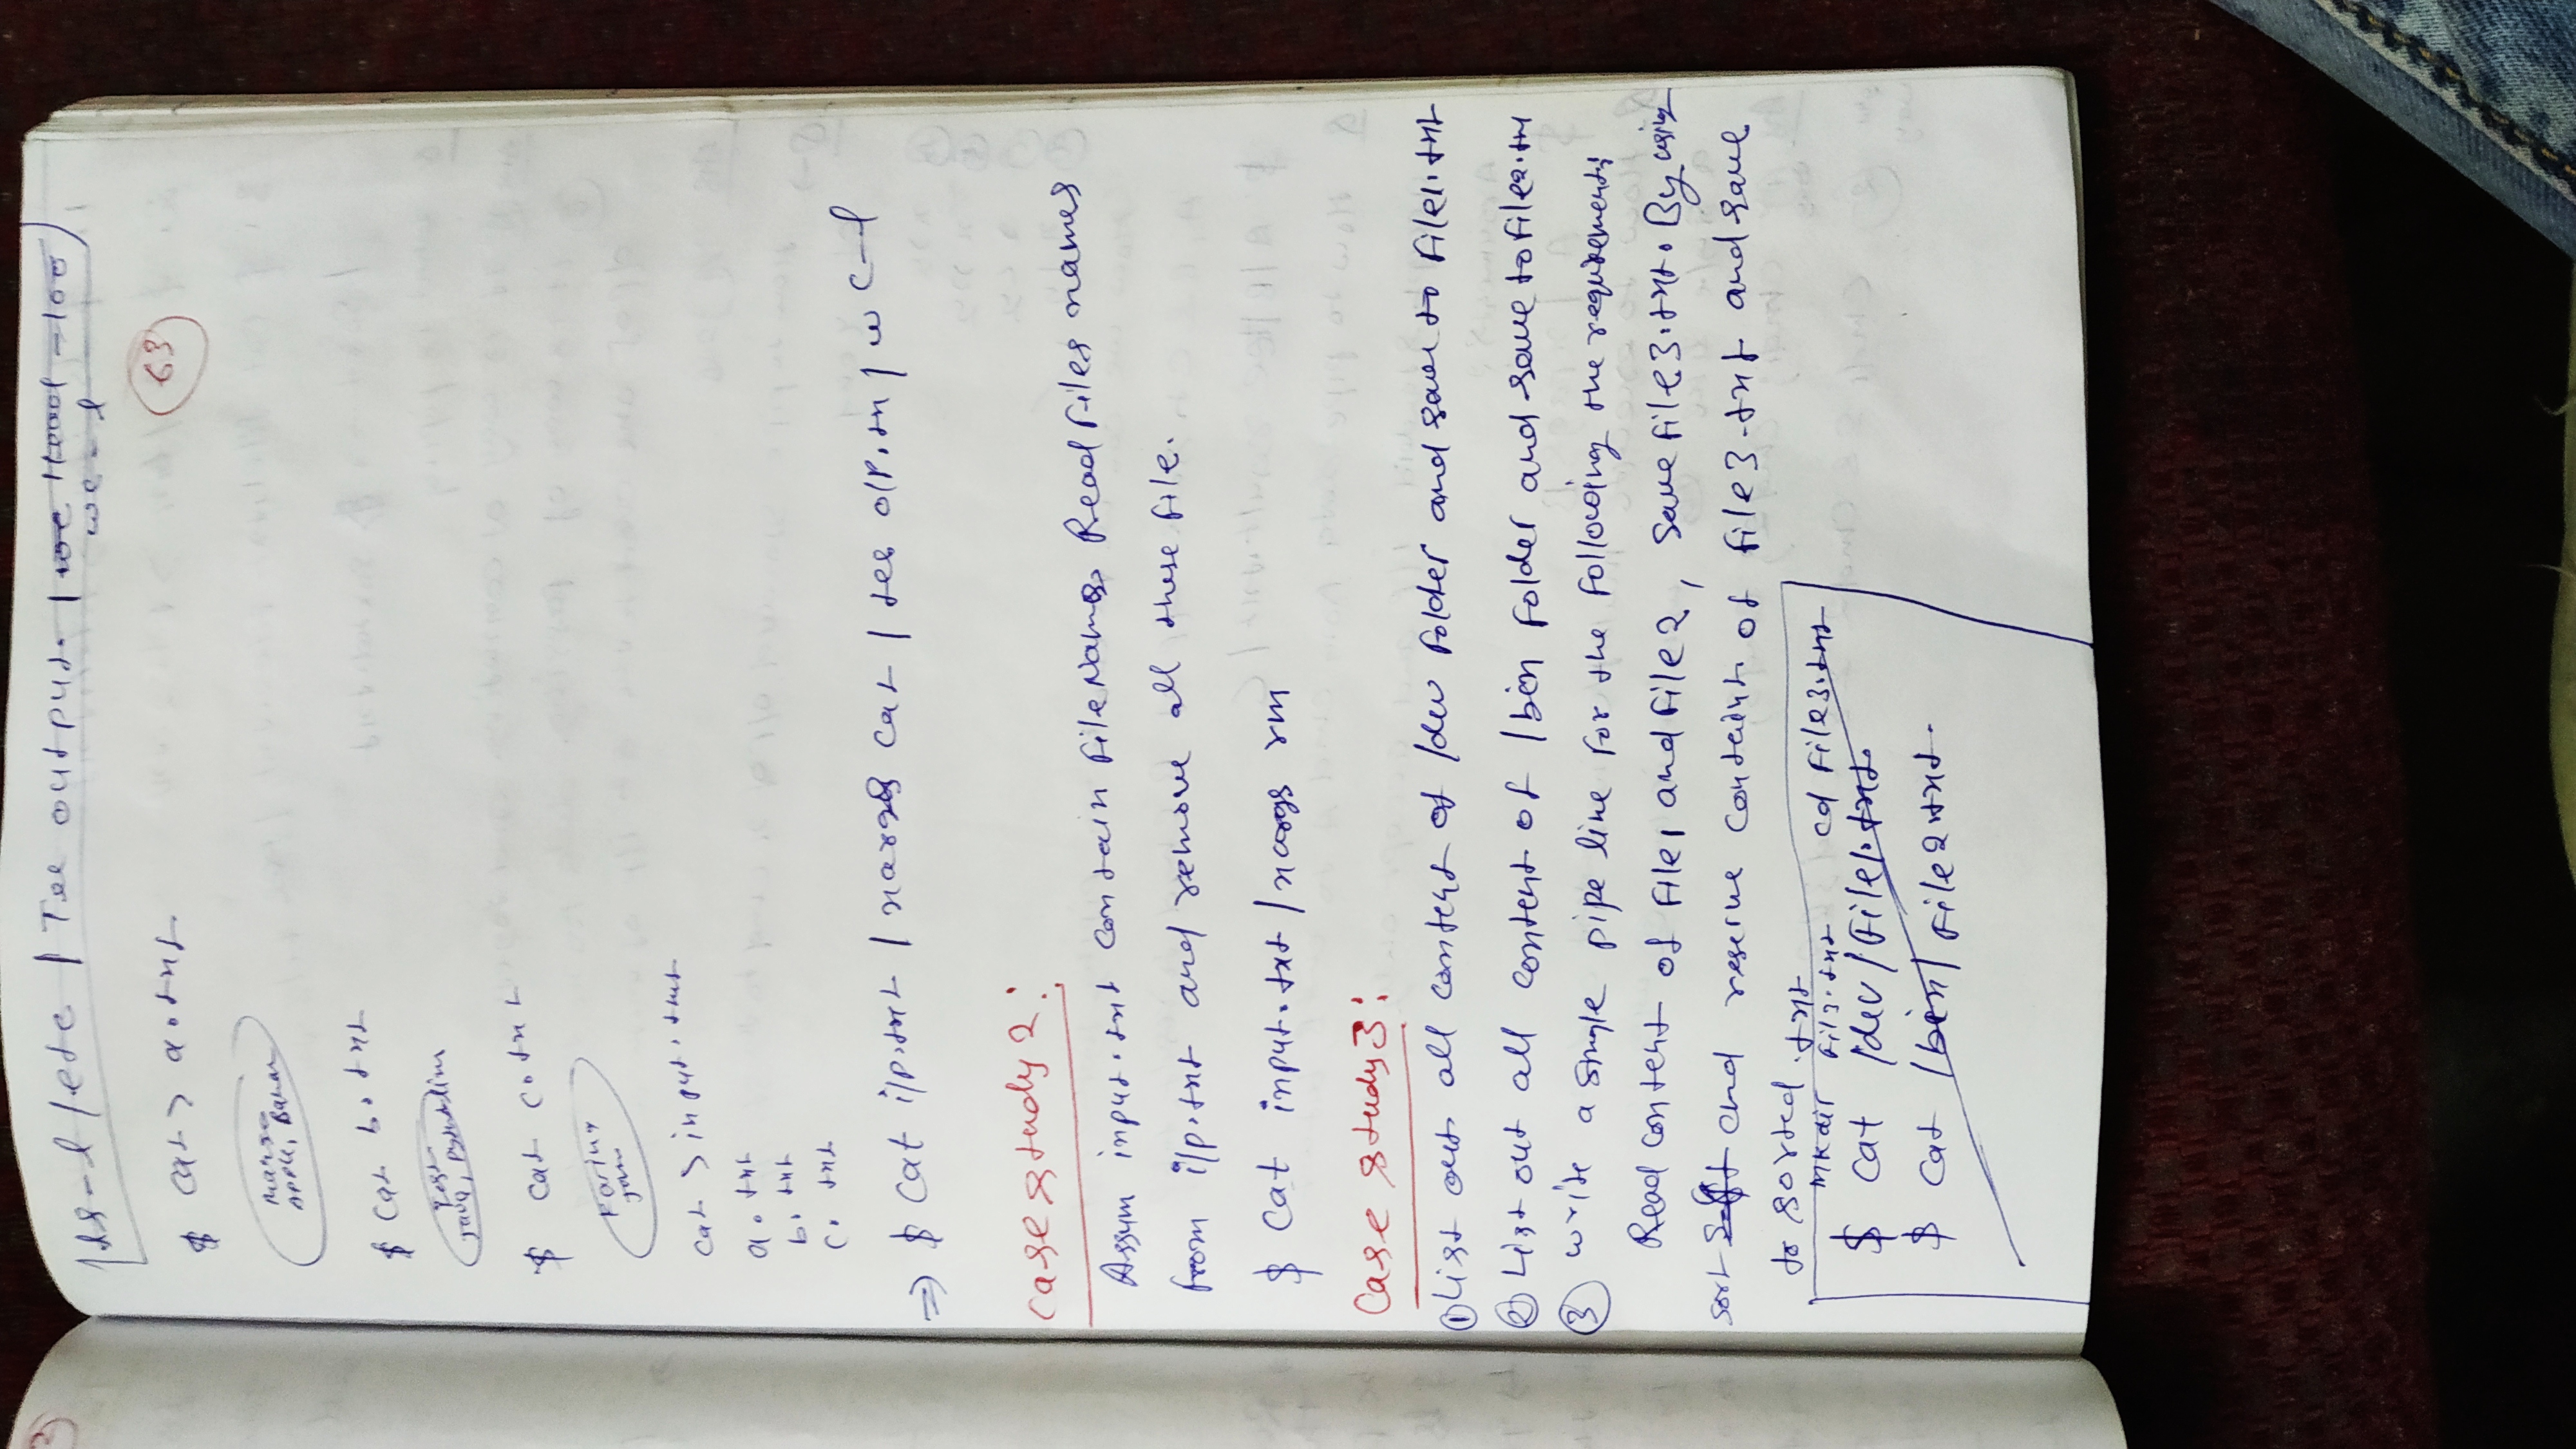 ls -l /etc | Tee output. | wc Head -100
wc -l
63
$ cat > a.txt
mango
apple, Banan
$ cat b.txt
java, python
$ cat c.txt
cat > input.txt
a.txt
b.txt
c.txt
⇒ $ cat i/p.txt | xargs cat | tee o/p.txt | wc -l
case study 2:
Assum input.txt contain filenames, Read files names
from i/p.txt and remove all these file.
$ cat input.txt | xargs rm
Case study 3:
① List out all content of /dev folder and save to file1.txt
② List out all content of /bin folder and save to file2.txt
③ write a single pipe line for the following the requirements
Read content of file1 and file2, save file3.txt. By using
sort and reserve containt of file3.txt and save
to sorted.txt
mkdir file3.txt cd file3.txt
$ cat /dev/file1.txt
$ cat /bin/file2.txt.